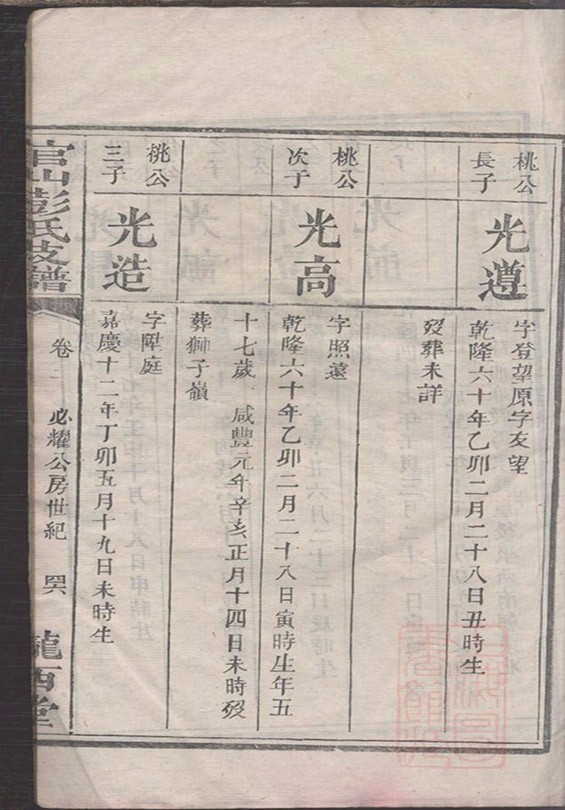 桃公
長子
光遵
字登望原字友望
乾隆六十年乙卯二月二十八日丑時生
歿葬未詳
桃公
次子
光高
字照遠
乾隆六十年乙卯二月二十八日寅時生年五
十七歲 咸豐元年辛亥正月十四日未時歿
葬獅子嶺
桃公
三子
光造
字陞庭
嘉慶十二年丁卯五月十九日未時生
官山彭氏支譜
卷二 必耀公房世紀
隴西堂